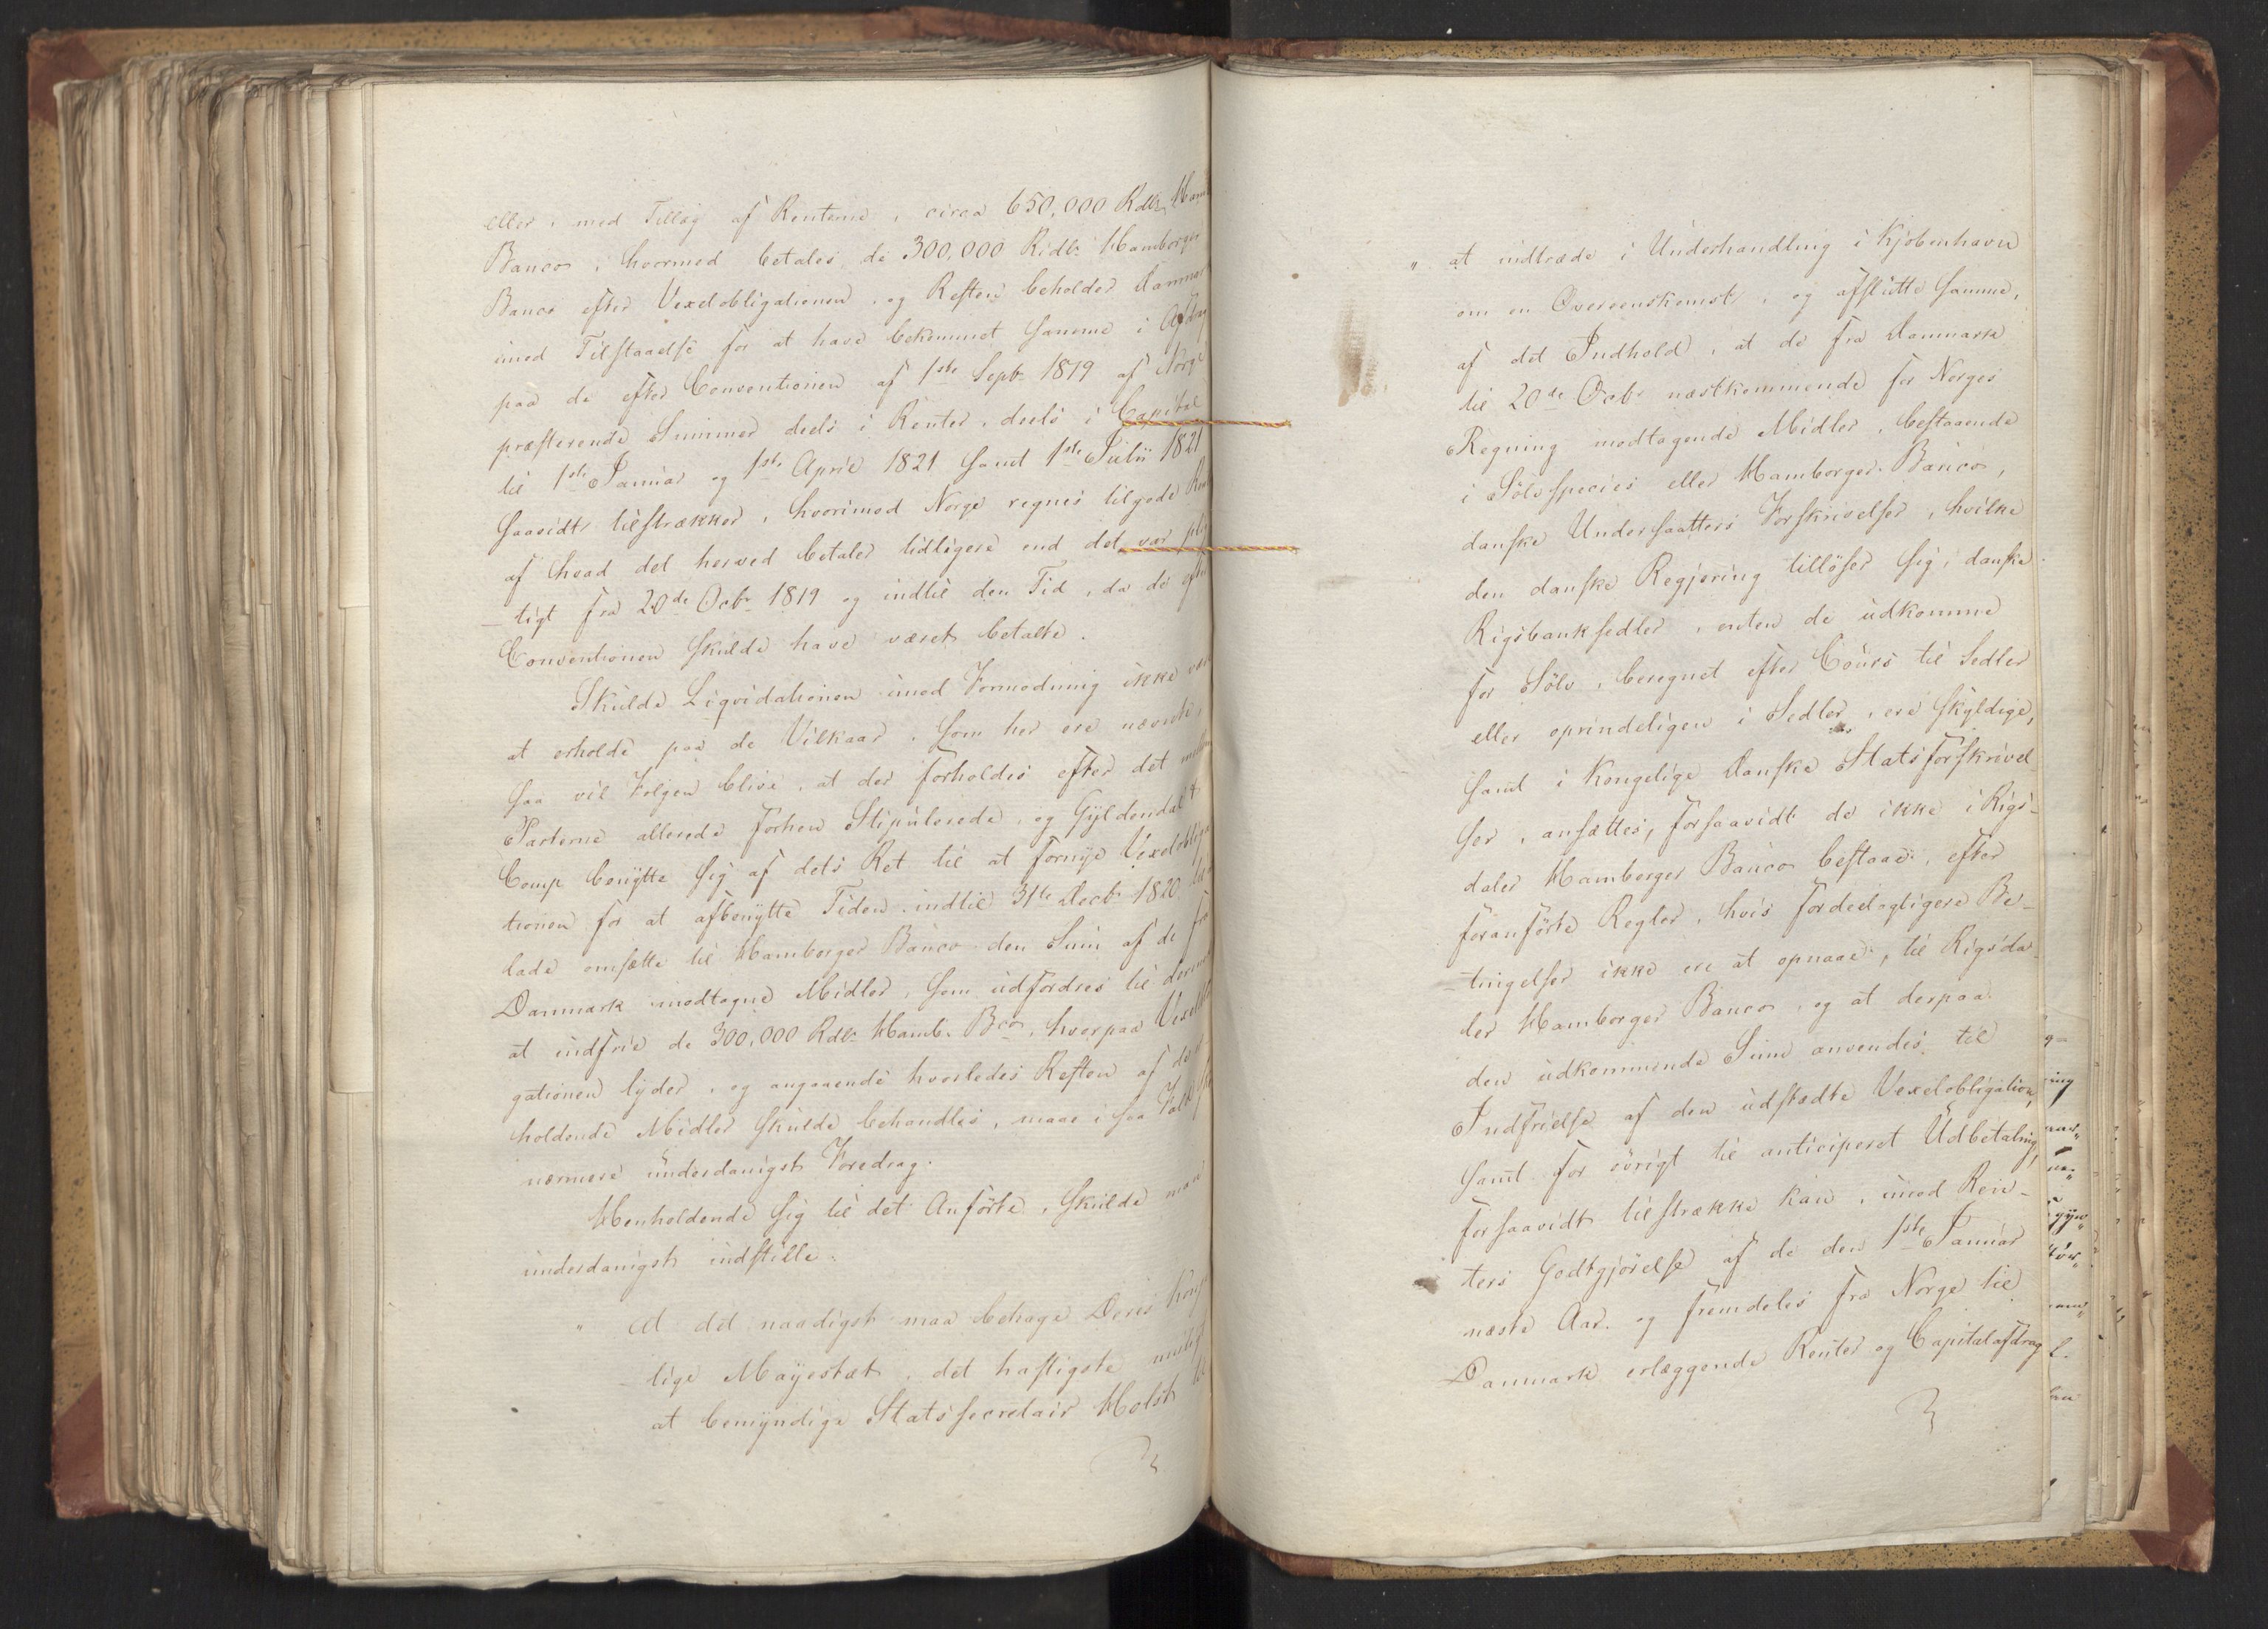 eller, med Tillæg af Renterne, circa 650,000 Rdlr Ham
Banco, hvormed betales de 300,000 Ridlr Hamborger
Banco efter Vexelobligationen, og Resten beholder Danmar
imod Tilstaaelse for at have bekommet samme i Afdrag
paa de efter Conventionen af 1ste Septbr 1819 af Norge
præsterende Summer deels i Renter, deels i Capital
til 1ste Januar og 1ste April 1821 samt 1ste Julii 1821
saavidt tilstrækker, hvorimod Norge regnes tilgode Ren
af hvad det herved betaler tidligere end det var pli
-tigt fra 20de Octbr 1819 og indtil den Tid, da de efter
Conventionen skulde have været betalte.
Skulde Liqvidationen imod Formodning ikke være
at erholde paa de Vilkaar, som her ere nævnte,
saa vil Følgen blive, at der forholdes efter det mellem
Parterne allerede forhen Stipulerede, og Gyldendal &
Comp benytte sig af dets Ret til at fornye Vexelobliga
tionen for at afbenytte Tiden indtil 31te Decbr 1820 til
lade omsætte til Hamborger Banco den Sum af de fra
Danmark modtagne Midler, som udfordres til dermed
at indfrie de 300,000 Rdlr Hamb. Bco, hvorpaa Vexelobli
gationen lyder, og angaaende hvorledes Resten af de
holdende Midler skulde behandles, maae i saa Fald
nærmere underdanigst Foredrag.
Henholdende sig til det Anførte, skulde man
underdanigst indstille:
" At det naadigst maa behage Deres Konge
-lige Mayestæt, det hastigste muligt
at bemyndige Statssecretair Holst til
" at indtræde i Underhandling i Kjøbenhavn
om en Overeenskomst, og afslutte samme,
af det Indhold, at de fra Danmark
til 20de Octbr næstkommende for Norges
Regning modtagende Midler, bestaaende
i Sölvspecies eller Hamborger Banco,
danske Undersaatters Forskrivelser, hvilke
den danske Regjering tillöser sig, danske
Rigsbanksedler, enten de udkomme
for Sölv, beregnet efter Cours til Sedler
eller oprindeligen i Sedler, ere skyldige,
samt i Kongelige Danske Statsforskrivel
ser, ansættes, forsaavidt de ikke i Rigs-
daler Hamborger Banco bestaae, efter
foranførte Regler, hvis fordeelagtigere Be-
-tingelser ikke ere at opnaae, til Rigsda-
ler Hamborger Banco, og at derpaa
den udkommende Sum anvendes til
Indfrielse af den udstædte Vexelobligation,
samt for övrigt til anticiperet Udbetaling,
forsaavidt tilstrække kan, imod Ren-
ters Godtgjörelse af de den 1ste Januar
næste Aar, og fremdeles fra Norge til
Danmark erlæggende Renter og Capitalafdrag